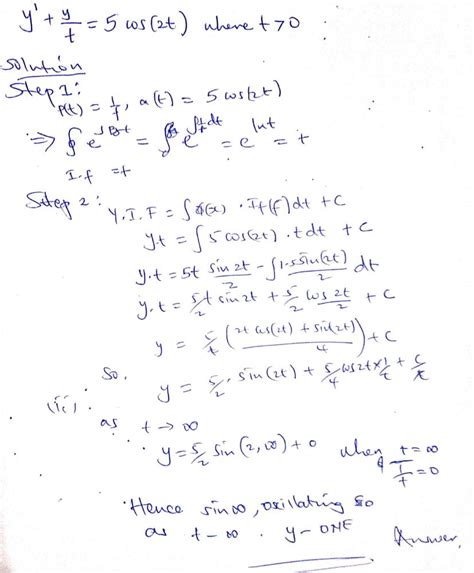 y' + y/t = 5 cos(2t) where t>0
Solution
Step 1:
P(t) = 1/t, a(t) = 5 cos(2t)
I.f = t
Step 2: y.I.F = ∫Q(x) . If(f)dt + C
y.t = ∫5 cos(2t) . t dt + C
y.t = 5t sin 2t/2 - ∫1.5 sin(2t)/2 dt
y.t = 5/2 t sin 2t + 5/2 cos 2t/2 + C
y = 5/t (2t cos(2t) + sin(2t)/4) + C
So,
y = 5/2 . sin(2t) + 5/4 cos 2t × 1/t + C/t
(ii).
as t → ∞
y = 5/2 sin(2,∞) + 0 when t = ∞
1/t = 0
Hence sin ∞, oscillating so
as t - ∞ . y - ONE Answer,